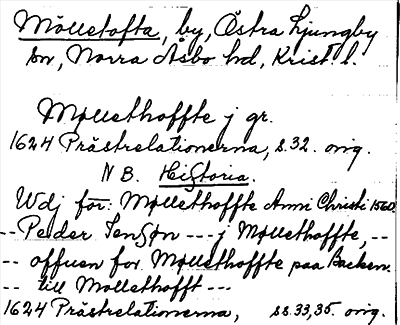 Mölletofta, by, Östra Ljungby
sn, Norra Åsbo hd, Krist. l.
Møllethoffte j gr.
1624 Prästrelationerna, s.32. orig.
N B. Historia.
Wdj for: Møllethoffte Anni Christi 1560.
-- Peder Jenßøn --- j Møllethoffte, --
-- offuen for Møllethoffte paa Backen.
-- till Møllethofft ---
1624 Prästrelationerna, ss.33,35. orig.